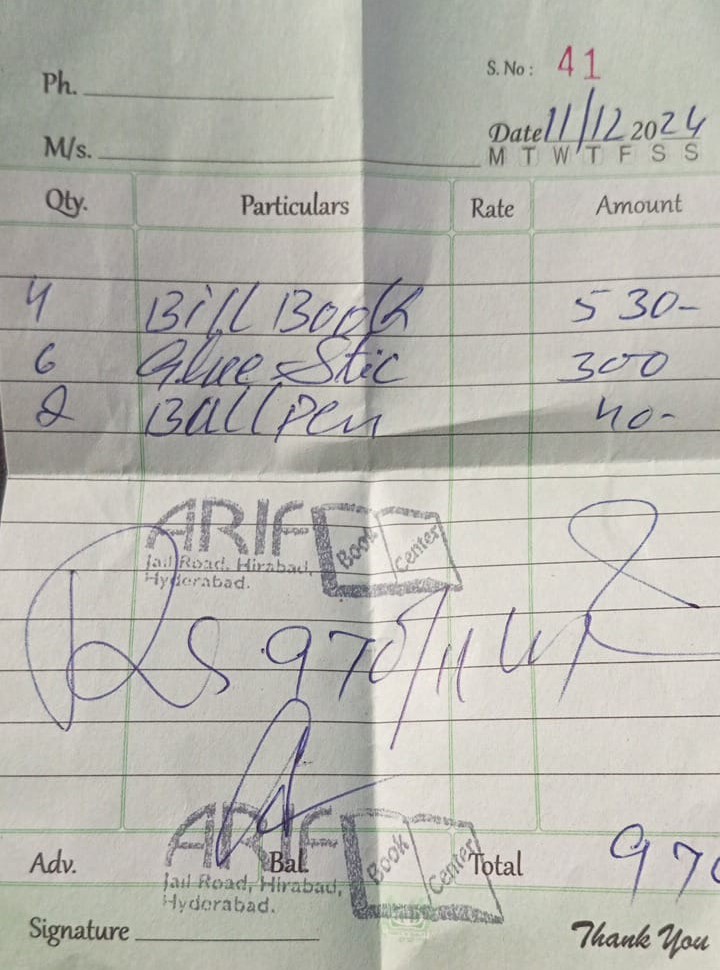 S. No : 41
Ph.
Date 11/12 2024
M/s.
M T W T F S S
Qty. Particulars Rate Amount
4 Bill Book 530-
6 Glue Stic 300
2 Ball Pen 40-
ARIF Book Center
Jail Road, Hirabad,
Hyderabad.
RS 970/
ARIF Book Center
Adv. Bal. Total 970
Jail Road, Hirabad,
Hyderabad.
Signature
Thank You